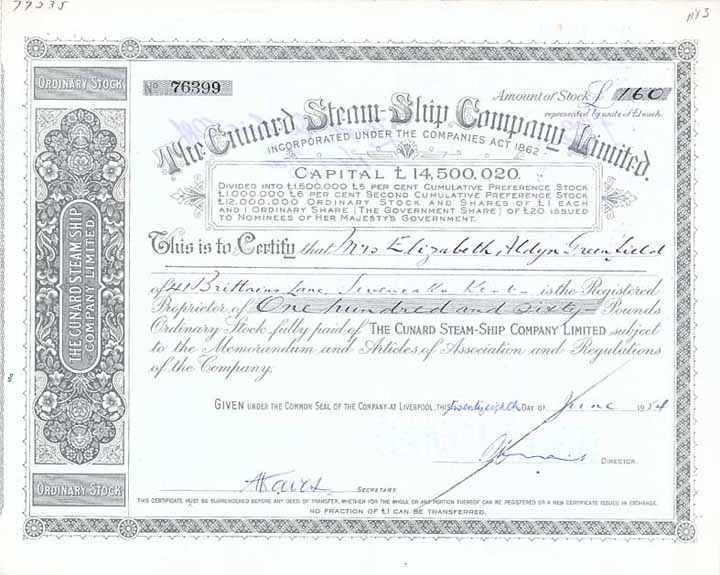 77235
1113
ORDINARY STOCK
Nº 76399
Amount of Stock £ 160
represented by units of £1 each.
The Cunard Steam-Ship Company Limited.
INCORPORATED UNDER THE COMPANIES ACT 1862
CAPITAL £14,500,020.
DIVIDED INTO £1,500,000 £5 PER CENT CUMULATIVE PREFERENCE STOCK
£1,000,000 £6 PER CENT SECOND CUMULATIVE PREFERENCE STOCK
£12,000,000 ORDINARY STOCK AND SHARES OF £1 EACH
AND 1 ORDINARY SHARE (THE GOVERNMENT SHARE) OF £20 ISSUED
TO NOMINEES OF HER MAJESTY'S GOVERNMENT.
This is to Certify that Mrs Elizabeth Aldyn Greenfield
of 41 Brittains Lane Sevenoaks Kent is the Registered
Proprietor of One hundred and sixty Pounds
Ordinary Stock fully paid of THE CUNARD STEAM-SHIP COMPANY LIMITED subject
to the Memorandum and Articles of Association and Regulations
of the Company.
GIVEN UNDER THE COMMON SEAL OF THE COMPANY AT LIVERPOOL, THIS twentyeighth DAY OF June 1954
DIRECTOR.
SECRETARY
THIS CERTIFICATE MUST BE SURRENDERED BEFORE ANY DEED OF TRANSFER, WHETHER FOR THE WHOLE OR ANY PORTION THEREOF CAN BE REGISTERED OR A NEW CERTIFICATE ISSUED IN EXCHANGE.
NO FRACTION OF £1 CAN BE TRANSFERRED.
THE CUNARD STEAM SHIP
COMPANY LIMITED
ORDINARY STOCK